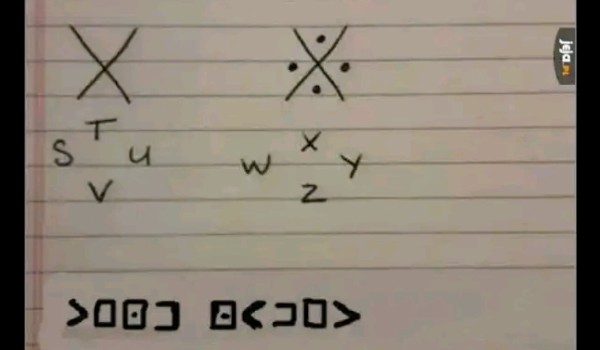 jeja.pl
T X
S U W Y
V Z
>□⊡⊐ ⊡<⊐□>